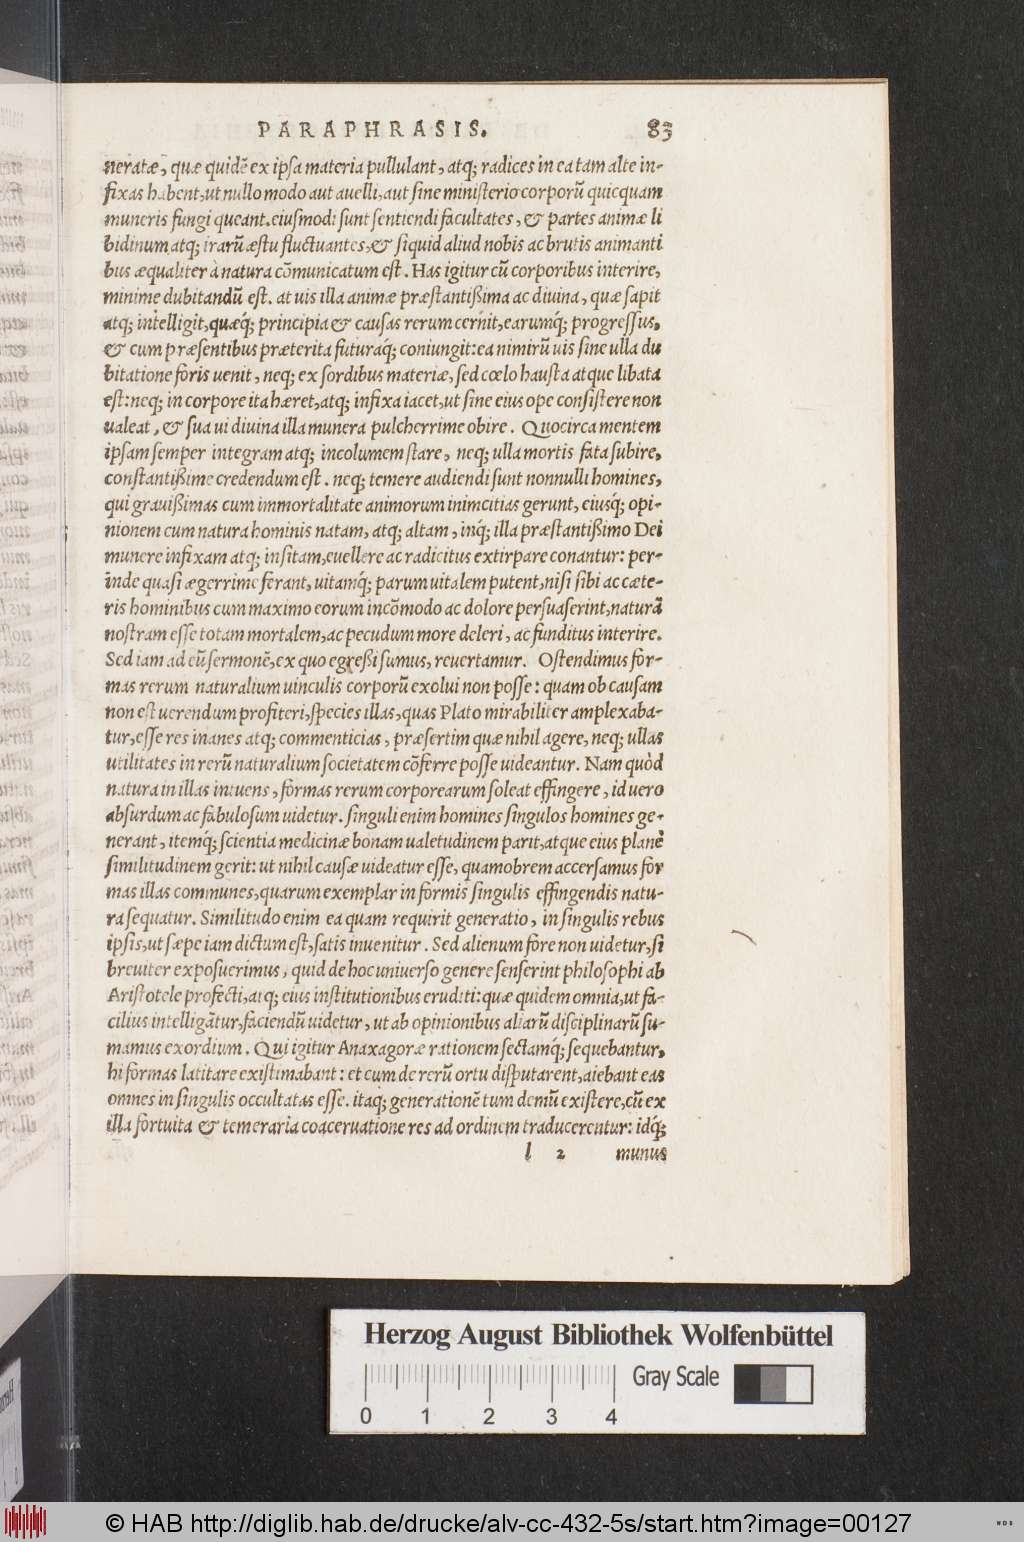 PARAPHRASIS. 83
neratæ, quæ quidē ex ipsa materia pullulant, atq; radices in ea tam alte in-
fixas habent, ut nullo modo aut auelli, aut sine ministerio corporū quicquam
muneris fungi queant. eiusmodi sunt sentiendi facultates, & partes animæ li
bidinum atq; irarū æstu fluctuantes, & siquid aliud nobis ac brutis animanti
bus æqualiter à natura cōmunicatum est. Has igitur cū corporibus interire,
minime dubitandū est. at uis illa animæ præstantißima ac diuina, quæ sapit
atq; intelligit, quæq́; principia & causas rerum cernit, earumq́; progressus,
& cum præsentibus præterita futuraq́; coniungit: ea nimirū uis sine ulla du
bitatione foris uenit, neq; ex sordibus materiæ, sed cœlo hausta atque libata
est: neq; in corpore ita hæret, atq; infixa iacet, ut sine eius ope consistere non
ualeat, & sua ui diuina illa munera pulcherrime obire. Quocirca mentem
ipsam semper integram atq; incolumem stare, neq; ulla mortis fata subire,
constantißime credendum est. neq; temere audiendi sunt nonnulli homines,
qui grauißimas cum immortalitate animorum inimcitias gerunt, eiusq́; opi-
nionem cum natura hominis natam, atq; altam, inq́; illa præstantißimo Dei
munere infixam atq; insitam, euellere ac radicitus extirpare conantur: per-
inde quasi ægerrime ferant, uitamq́; parum uitalem putent, nisi sibi ac cæte-
ris hominibus cum maximo eorum incōmodo ac dolore persuaserint, naturā
nostram esse totam mortalem, ac pecudum more deleri, ac funditus interire.
Sed iam ad eū sermonē, ex quo egreßi sumus, reuertamur. Ostendimus for-
mas rerum naturalium uinculis corporū exolui non posse: quam ob causam
non est uerendum profiteri, species illas, quas Plato mirabiliter amplexaba-
tur, esse res inanes atq; commenticias, præsertim quæ nihil agere, neq; ullas
utilitates in rerū naturalium societatem cōferre posse uideantur. Nam quòd
natura in illas intuens, formas rerum corporearum soleat effingere, id uero
absurdum ac fabulosum uidetur. singuli enim homines singulos homines ge-
nerant, itemq́; scientia medicinæ bonam ualetudinem parit, atque eius planè
similitudinem gerit: ut nihil causæ uideatur esse, quamobrem accersamus for
mas illas communes, quarum exemplar in formis singulis effingendis natu-
ra sequatur. Similitudo enim ea quam requirit generatio, in singulis rebus
ipsis, ut sæpe iam dictum est, satis inuenitur. Sed alienum fore non uidetur, si
breuiter exposuerimus, quid de hoc uniuerso genere senserint philosophi ab
Aristotele profecti, atq; eius institutionibus eruditi: quæ quidem omnia, ut fa-
cilius intelligātur, faciendū uidetur, ut ab opinionibus aliarū disciplinarū su-
mamus exordium. Qui igitur Anaxagoræ rationem sectamq́; sequebantur,
hi formas latitare existimabant: et cum de rerū ortu disputarent, aiebant eas
omnes in singulis occultatas esse. itaq; generationē tum demū existere, cū ex
illa fortuita & temeraria coaceruatione res ad ordinem traducerentur: idq́;
l 2 munus
Herzog August Bibliothek Wolfenbüttel
Gray Scale
0 1 2 3 4
© HAB http://diglib.hab.de/drucke/alv-cc-432-5s/start.htm?image=00127